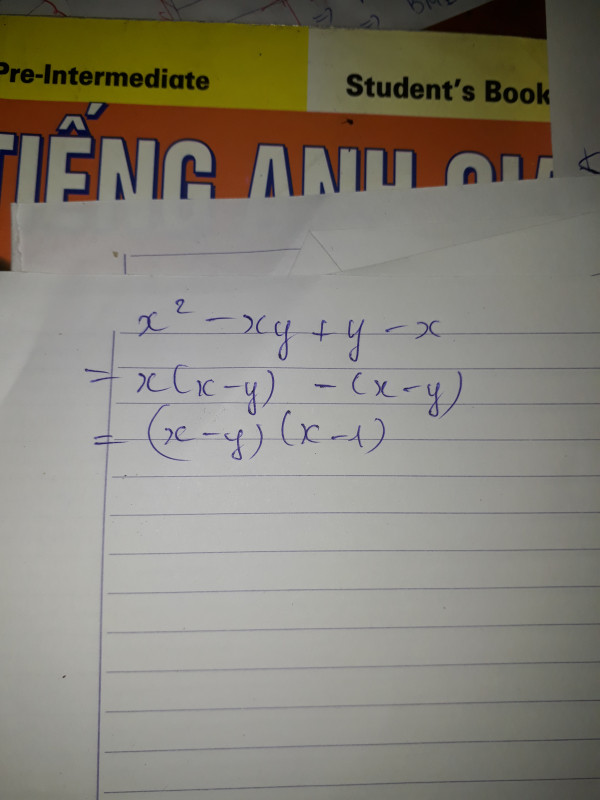 Pre-Intermediate
Student's Book
TIẾNG ANH
x² - xy + y - x
= x(x-y) - (x-y)
= (x-y)(x-1)